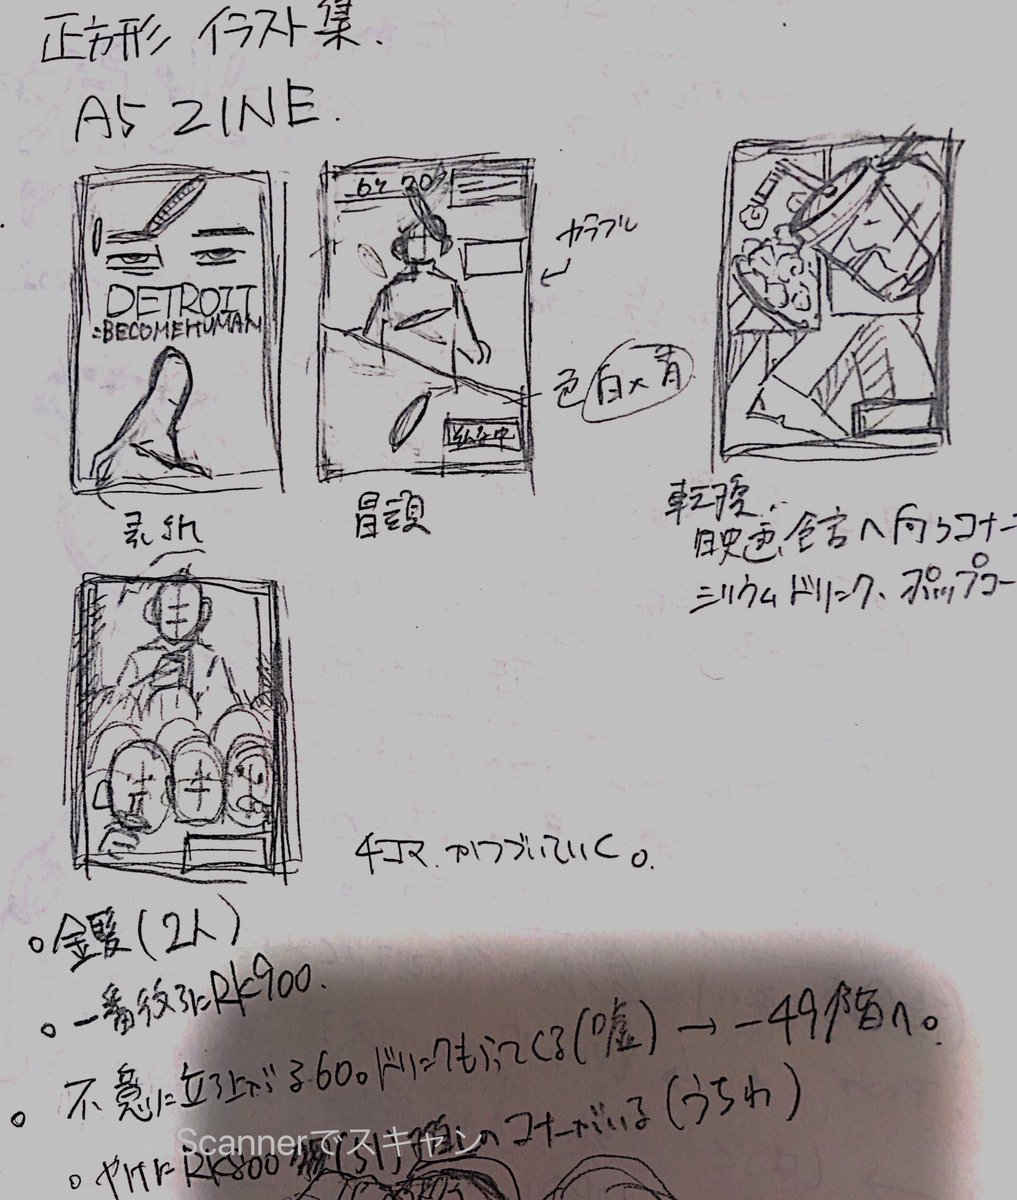 正方形 イラスト集.
A5 ZINE.
DETROIT
:BECOME HUMAN
カラフル
色 白×青
表紙
冒頭
転換.
映画館へ向うコナー
シリウムドリンク、ポップコー
4コマ.がつづいていく。
○金髪(2人)
○一番後ろにRK900.
○不意に立ち上がる60。ドリンクもらってくる(嘘)→-49階へ。
○やけにRK800 のコナーがいる(うちわ)
Scannerでスキャン